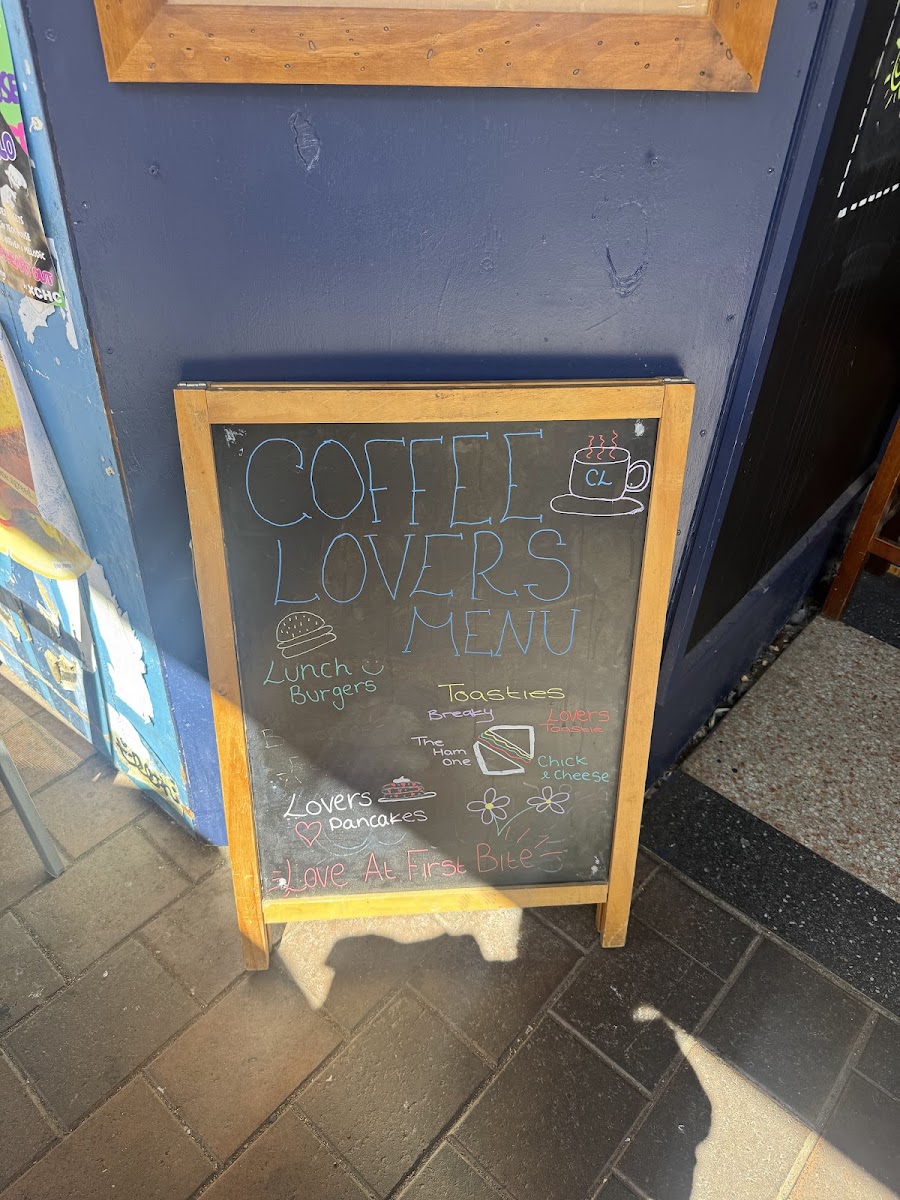 COFFEE
LOVERS
MENU
CL
Lunch
Burgers
Toasties
Breaky
Lovers
Toastie
The
Ham
one
Chick
& Cheese
Lovers
Pancakes
Love At First Bite
XCHC